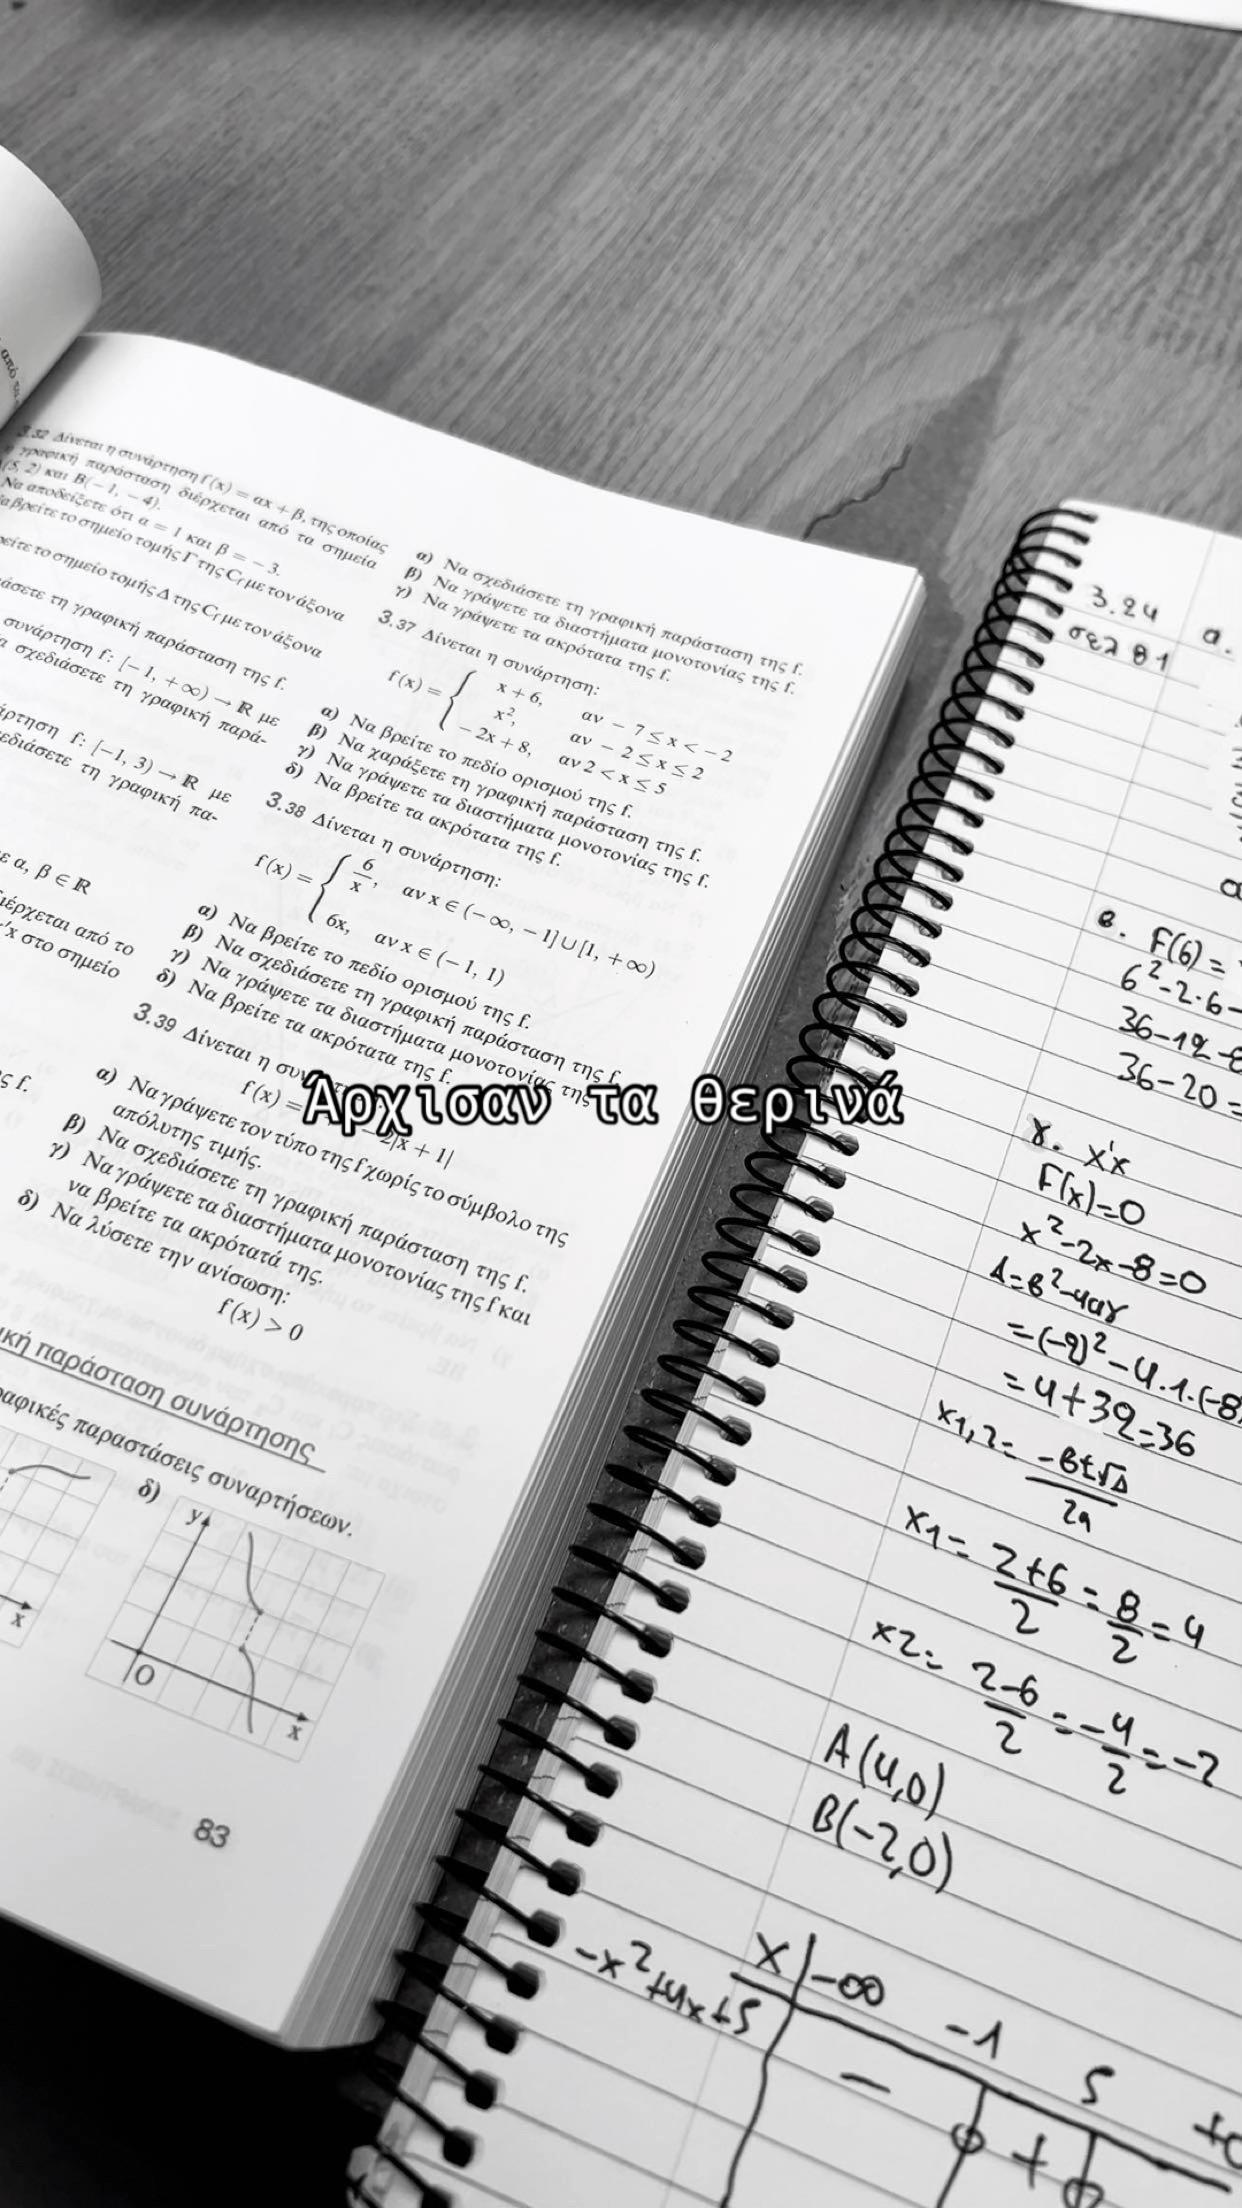 από τις
3.32 Δίνεται η συνάρτηση f(x) = αx + β, της οποίας
γραφική παράσταση διέρχεται από τα σημεία
(5, 2) και B(−1, −4).
Να αποδείξετε ότι α = 1 και β = −3.
βρείτε το σημείο τομής Γ της Cf με τον άξονα
βρείτε το σημείο τομής Δ της Cf με τον άξονα
άσετε τη γραφική παράσταση της f.
συνάρτηση f: [−1, +∞) → ℝ με
σχεδιάσετε τη γραφική παρά-
άρτηση f: [−1, 3) → ℝ με
εδιάσετε τη γραφική πα-
ε α, β ∈ ℝ
ιέρχεται από το
΄x στο σημείο
ς f.
α) Να σχεδιάσετε τη γραφική παράσταση της f.
β) Να γράψετε τα διαστήματα μονοτονίας της f.
γ) Να γράψετε τα ακρότατα της f.
3.37 Δίνεται η συνάρτηση:
f(x) = { x + 6, αν −7 ≤ x < −2
x², αν −2 ≤ x ≤ 2
−2x + 8, αν 2 < x ≤ 5
α) Να βρείτε το πεδίο ορισμού της f.
β) Να χαράξετε τη γραφική παράσταση της f.
γ) Να γράψετε τα διαστήματα μονοτονίας της f.
δ) Να βρείτε τα ακρότατα της f.
3.38 Δίνεται η συνάρτηση:
f(x) = { 6/x, αν x ∈ (−∞, −1] ∪ [1, +∞)
6x, αν x ∈ (−1, 1)
α) Να βρείτε το πεδίο ορισμού της f.
β) Να σχεδιάσετε τη γραφική παράσταση της f.
γ) Να γράψετε τα διαστήματα μονοτονίας της
δ) Να βρείτε τα ακρότατα της f.
3.39 Δίνεται η συν
f(x) = −2|x + 1|
Άρχισαν τα θερινά
α) Να γράψετε τον τύπο της f χωρίς το σύμβολο της
απόλυτης τιμής.
β) Να σχεδιάσετε τη γραφική παράσταση της f.
γ) Να γράψετε τα διαστήματα μονοτονίας της f και
να βρείτε τα ακρότατά της.
δ) Να λύσετε την ανίσωση:
f(x) > 0
ική παράσταση συνάρτησης
ραφικές παραστάσεις συναρτήσεων.
δ)
y
O
x
x
83
3.24
σελ 81
α.
β. F(6) =
6²-2·6-
36-12-8
36-20=
γ. x'x
F(x)=0
x²-2x-8=0
Δ=β²-4αγ
=(-2)²-4·1·(-8)
=4+32=36
x1,2= -β±√Δ/2α
x1= 2+6/2 = 8/2 = 4
x2= 2-6/2 = -4/2 = -2
A(4,0)
B(-2,0)
x -∞ -1 5 +
-x²+4x+5 - +